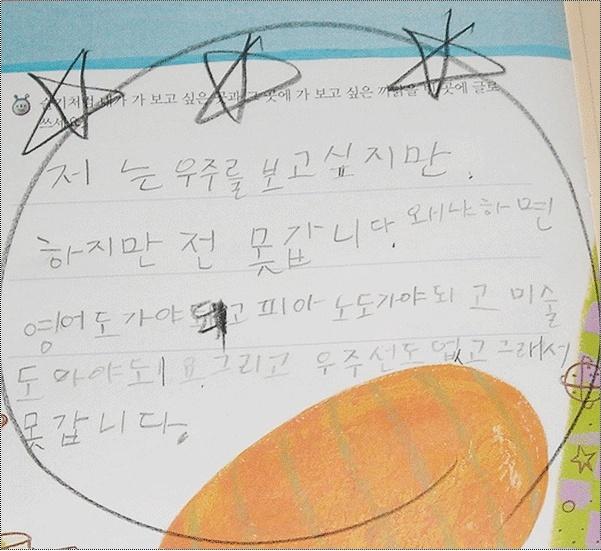 가 가 보고 싶은 곳과 그 곳에 가 보고 싶은 까닭을 빈 곳에 글로
쓰세요
저 는 우주를 보고싶지만.
하지만 전 못갑니다. 왜냐하면
영어도가야되고 피아노도가야되고 미술
도 가야되요. 그리고 우주선도 없고 그래서
못갑니다.